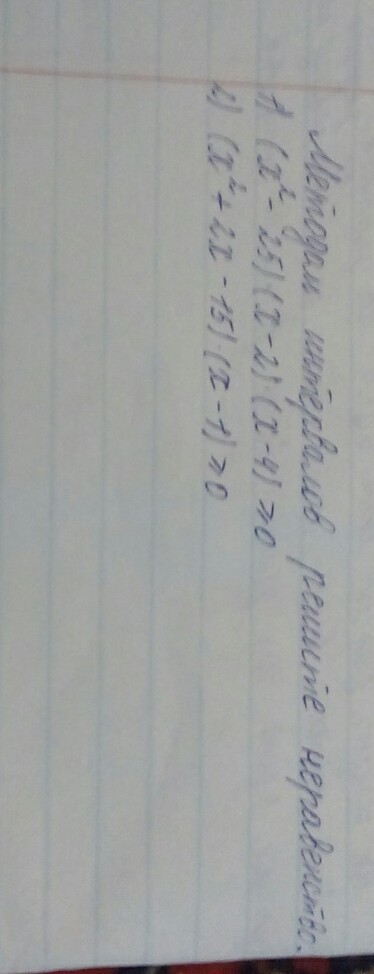 Методом интервалов решите неравенство.
1) (x² - 25)·(x - 2)·(x - 4) ⩾ 0
2) (x² + 2x - 15)·(x - 1) ⩾ 0